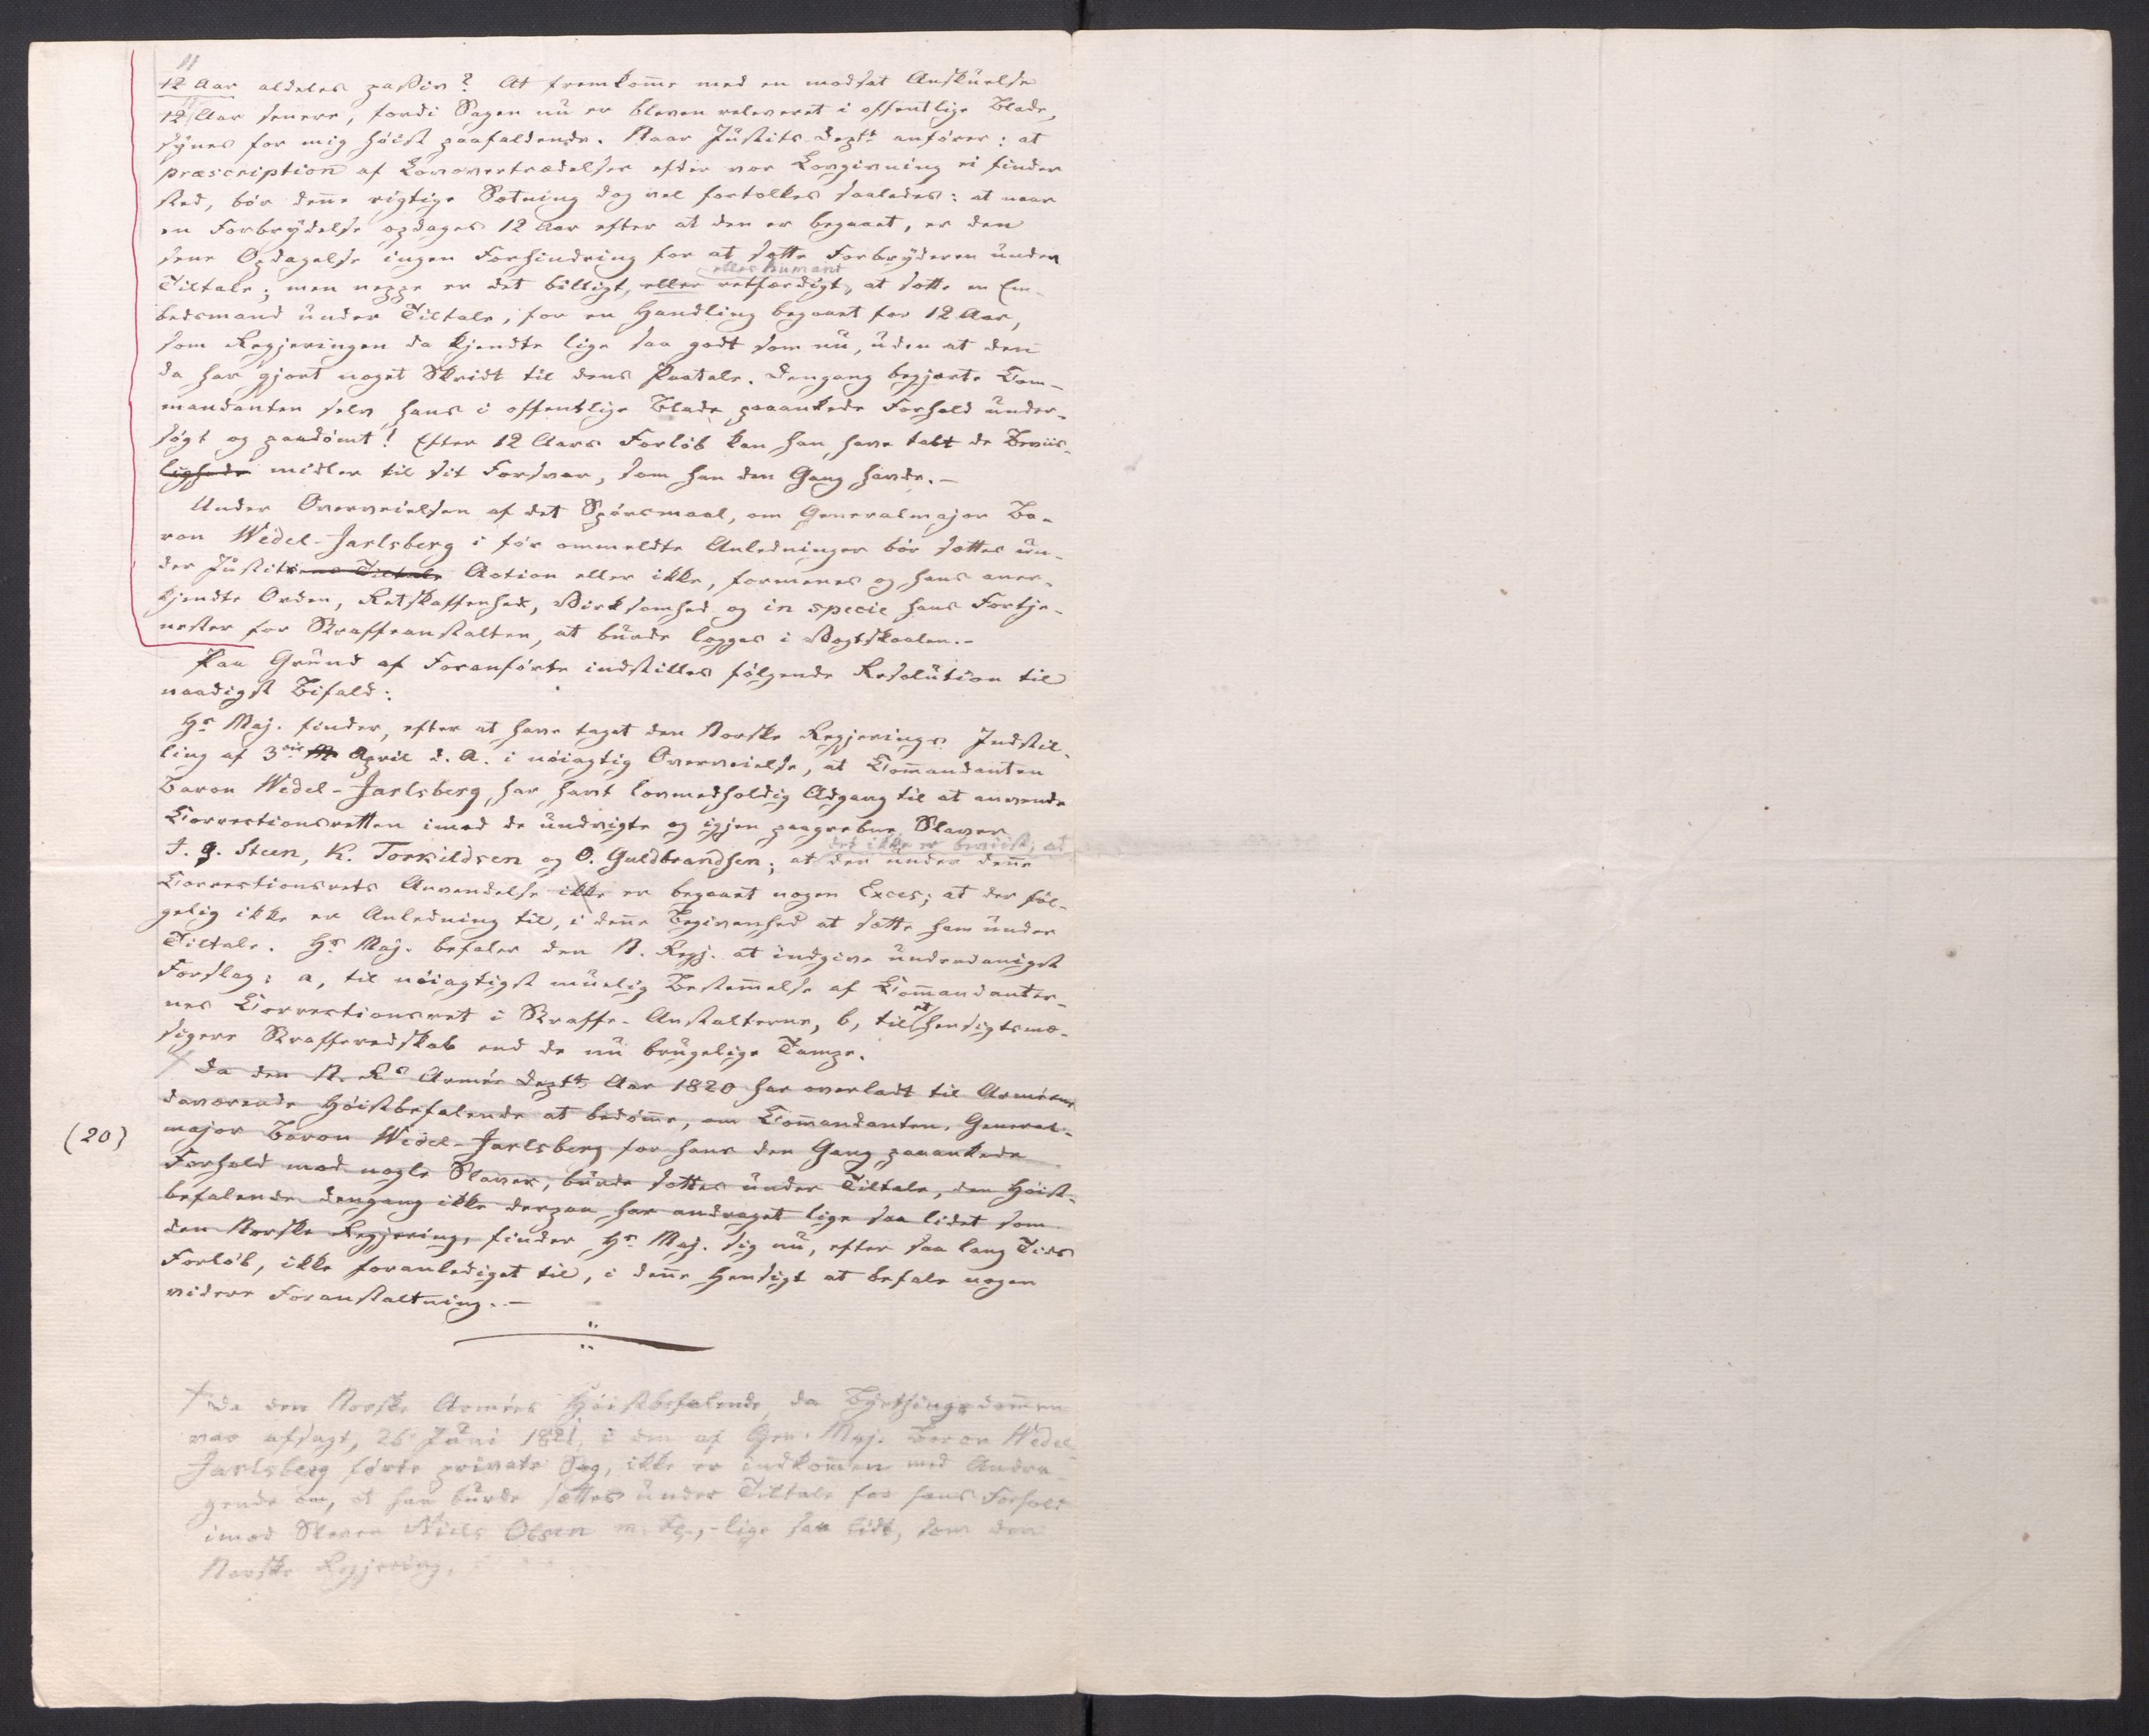 11
12 Aar aldeles passiv? At fremkomme med en modsat Anskuelse
12 Aar senere, fordi Sagen nu er bleven releveret i offentlige Blade,
synes for mig høist paafaldende. Naar Justits Deptt anfører: at
præscription af Lovovertrædelser efter vor Lovgivning ei finder
Sted, bør denne rigtige Sætning dog vel fortolkes saaledes: at naar
en Forbrydelse opdages 12 Aar efter at den er begaaet, er den
sene Opdagelse ingen Forhindring for at sætte Forbryderen under
eller humant
Tiltale; men neppe er det billigt, eller retfærdigt, at sætte en Em-
bedsmand under Tiltale, for en Handling begaaet for 12 Aar,
som Regjeringen da kjendte lige saa godt som nu, uden at den
da har gjort noget Skridt til dens Paatale. Dengang begjærte Com-
mandanten selv hans i offentlige Blade paaankede Forhold under-
søgt og paadømt! Efter 12 Aars Forløb kan han have tabt de Beviis-
lighede midler til sit Forsvar, som han den Gang havde. -
Under Overveielsen af det Spørsmaal, om Generalmajor Ba-
ron Wedel-Jarlsberg i før ommeldte Anledninger bør sættes un-
der Justitiens Tiltale Action eller ikke, formenes og hans aner-
kjendte Orden, Retskaffenhed, Virksomhed og in specie hans Fortje-
nester for Straffeanstalten, at burde lægges i Vægtskaalen. -
Paa Grund af Foranførte indstilles følgende Resolution til
naadigst Bifald:
Hs Maj. finder, efter at have taget den Norske Regjerings Indstil-
ling af 3die April d. A. i nøiagtig Overveielse, at Commandanten
Baron Wedel-Jarlsberg, har havt lovmedholdig Adgang til at anvende
Correctionsretten imod de undvigte og igjen paagrebne Slaver
det ikke er beviist, at
J. G. Steen, K. Torkildsen og O. Guldbrandsen; at der under denne
Correctionsrets Anvendelse ikke er begaaet nogen Exces; at der føl-
gelig ikke er Anledning til, i denne Begivenhed at sætte ham under
Tiltale. Hs Maj. befaler den N. Regj. at indgive underdanigst
Forslag: a, til nøiagtigst muelig Bestemmelse af Commandanter-
nes Correctionsret i Straffe-Anstalterne, b, til et hensigtsmæ-
sigere Strafferedskab end de nu brugelige Tampe.
Da den N. Rs Armee Deptt Aar 1820 har overladt til Armeens
daværende Høistbefalende at bedømme, om Commandanten, General-
(20)
major Baron Wedel-Jarlsberg for hans den Gang paaankede
Forhold mod nogle Slaver, burde sættes under Tiltale, den Høist-
befalende dengang ikke derpaa har andraget lige saa lidet som
den Norske Regjering, finder Hs Maj. sig nu, efter saa lang Tids
Forløb, ikke foranlediget til, i denne Hensigt at befale nogen
videre Foranstaltning. -
Da den Norske Armees Høistbefalende, da Byethingsdommen
var afsagt, 26 Juni 1821, i den af Gen. Maj. Baron Wedel
Jarlsberg førte private Sag, ikke er indkommen med Andra-
gende om, at han burde sættes under Tiltale for hans Forhold
imod Slaven Niels Olsen m. fl., - lige saa lidt, som den
Norske Regjering,